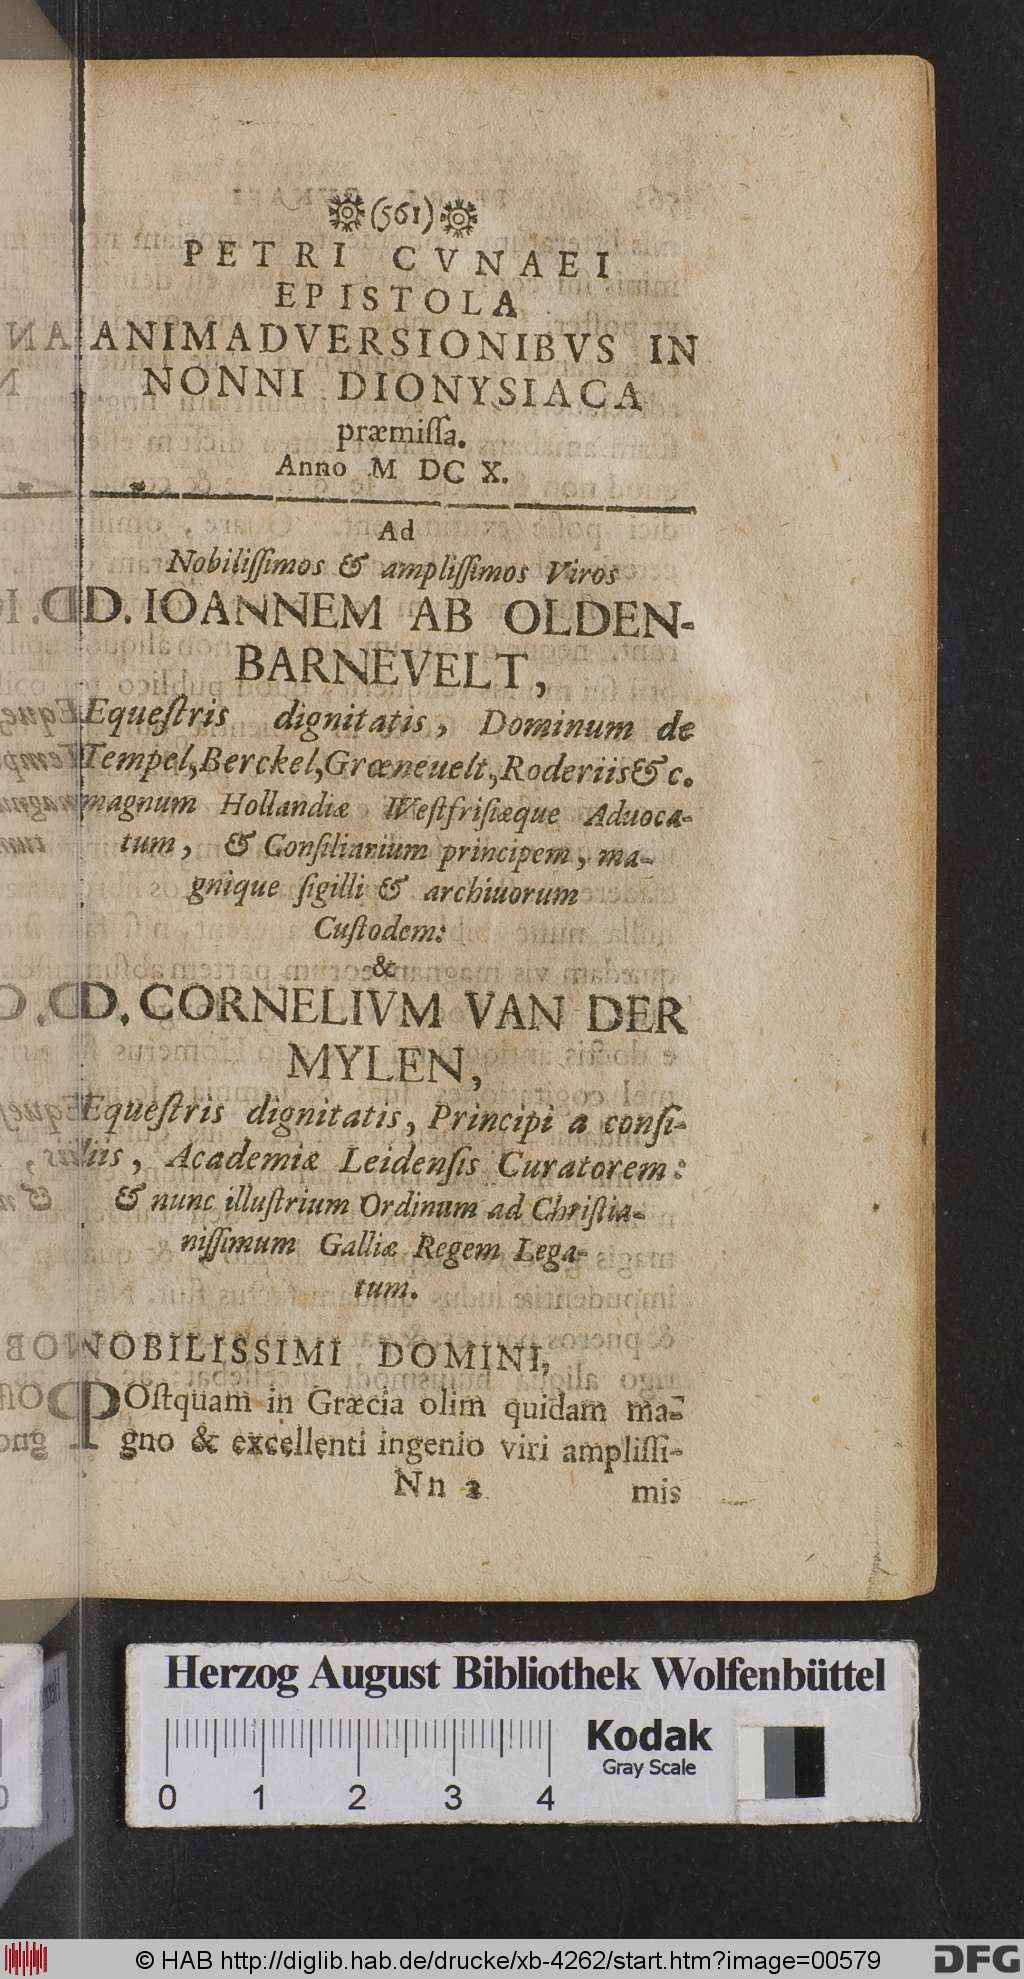 (561)
PETRI CVNAEI
EPISTOLA
ANIMADVERSIONIBVS IN
NONNI DIONYSIACA
præmiſſa.
Anno M DC X.
Ad
Nobiliſſimos & ampliſſimos Viros
D. IOANNEM AB OLDEN-
BARNEVELT,
Equeſtris dignitatis, Dominum de
Tempel, Berckel, Grœneuelt, Roderiis &c.
magnum Hollandiæ Weſtfriſiæque Aduoca-
tum, & Conſiliarium principem, ma-
gnique ſigilli & archiuorum
Cuſtodem:
&
D. CORNELIVM VAN DER
MYLEN,
Equeſtris dignitatis, Principi a conſi-
liis, Academiæ Leidenſis Curatorem:
& nunc illuſtrium Ordinum ad Chriſtia-
niſſimum Galliæ Regem Lega-
tum.
NOBILISSIMI DOMINI,
POſtquam in Græcia olim quidam ma-
gno & excellenti ingenio viri ampliſſi-
Nn 2 mis
Herzog August Bibliothek Wolfenbüttel
Kodak
Gray Scale
0 1 2 3 4
© HAB http://diglib.hab.de/drucke/xb-4262/start.htm?image=00579
DFG